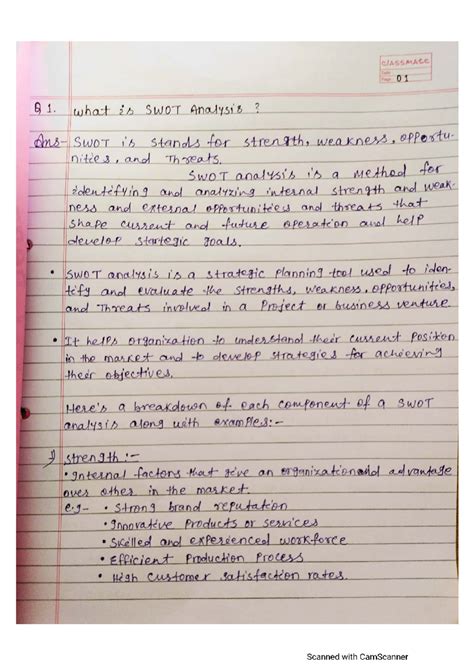 CLASSMATE
Date
Page 01
Q 1. What is SWOT Analysis ?
Ans- SWOT is stands for strength, weakness, opportu-
nities, and Threats.
SWOT analysis is a Method for
identifying and analyzing internal strength and weak-
ness and external opportunities and threats that
shape current and future operation and help
develop startegic goals.
• SWOT analysis is a strategic planning tool used to iden-
tify and evaluate the strengths, weakness, opportunities,
and Threats involved in a Project or business venture
• It helps organization to understand their current Position
in the market and to develop strategies for achieving
their objectives.
Here's a breakdown of each component of a SWOT
analysis along with examples:-
1) strength :-
• Internal factors that give an organization and advantage
over other in the market.
e.g- • Strong brand reputation
• Innovative Products or services
• Skilled and experienced workforce
• Efficient Production Process
• High Customer satisfaction rates.
Scanned with CamScanner